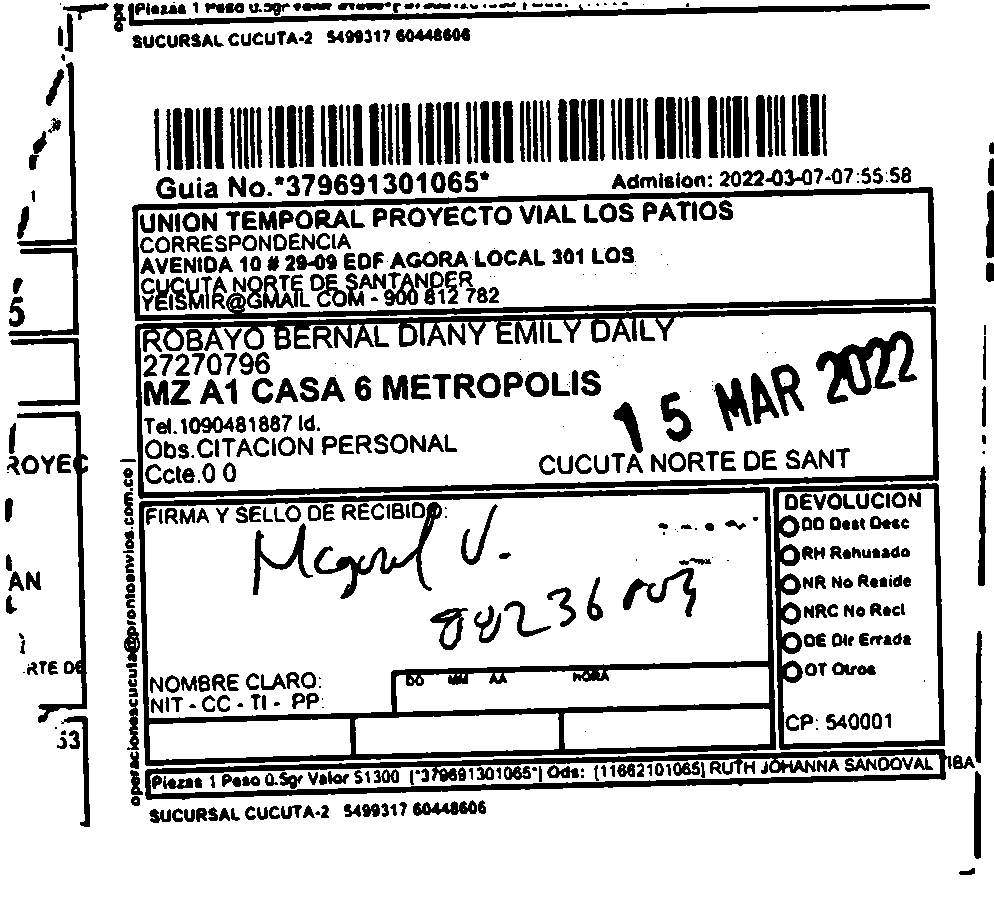 SUCURSAL CUCUTA-2 5499317 60448606
Guia No.*379691301065*
Admision: 2022-03-07-07:55:58
UNION TEMPORAL PROYECTO VIAL LOS PATIOS
CORRESPONDENCIA
AVENIDA 10 # 29-09 EDF AGORA LOCAL 301 LOS
CUCUTA NORTE DE SANTANDER
YEISMIR@GMAIL COM - 900 812 782
ROBAYO BERNAL DIANY EMILY DAILY
27270796
MZ A1 CASA 6 METROPOLIS
15 MAR 2022
Tel.1090481887 Id.
Obs.CITACION PERSONAL
Ccte.0 0
CUCUTA NORTE DE SANT
operacionescucuta@prontoenvios.com.co
FIRMA Y SELLO DE RECIBIDO:
NOMBRE CLARO:
NIT - CC - TI - PP:
DD MM AA HORA
DEVOLUCION
DD Dest Desc
RH Rehusado
NR No Reside
NRC No Recl
DE Dir Errada
OT Otros
CP: 540001
Piezas 1 Peso 0.5gr Valor $1300 [*379691301065*] Ods: [11662101065] RUTH JOHANNA SANDOVAL TIBA
SUCURSAL CUCUTA-2 5499317 60448606